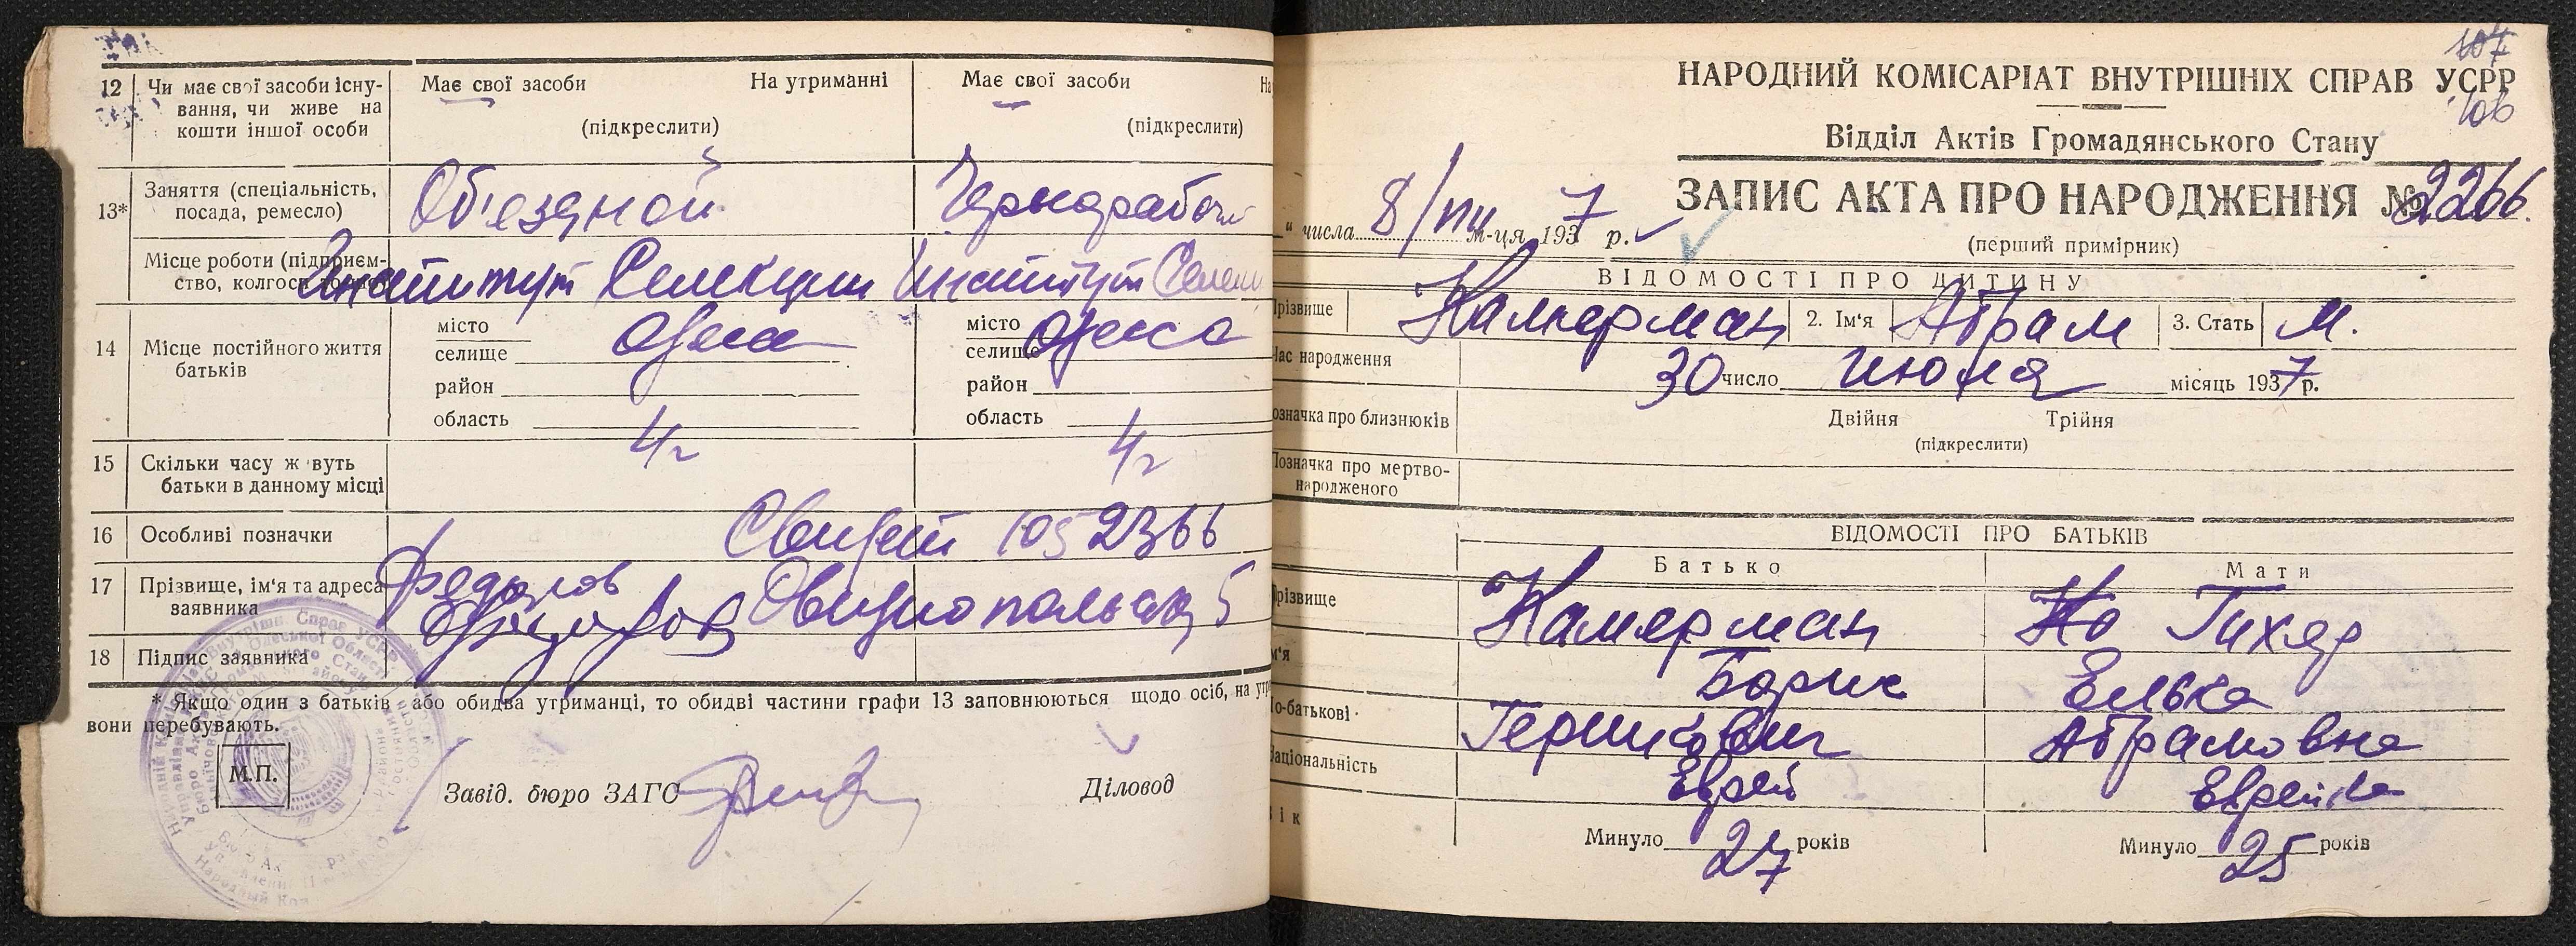 12 Чи має свої засоби існування, чи живе на кошти іншої особи
Має свої засоби На утриманні
(підкреслити)
Має свої засоби На
(підкреслити)
13* Заняття (спеціальність, посада, ремесло)
Об'ездной
Чернорабоч
Місце роботи (підприємство, колгосп
Институт Селекции
Институт Селекц
14 Місце постійного життя батьків
місто
селище Одесса
район
область
місто
селище Одесса
район
область
15 Скільки часу ж вуть батьки в данному місці
4 г
4 г
16 Особливі позначки
Свидет 1052366
17 Прізвище, ім'я та адреса заявника
Овидиопольская 5
18 Підпис заявника
* Якщо один з батьків або обидва утриманці, то обидві частини графи 13 заповнюються щодо осіб, на утр
вони перебувають.
М.П.
Завід. бюро ЗАГС
Діловод
107
106
НАРОДНИЙ КОМІСАРІАТ ВНУТРІШНІХ СПРАВ УСРР
Відділ Актів Громадянського Стану
ЗАПИС АКТА ПРО НАРОДЖЕННЯ № 2266.
„ " числа 8/VIII м-ця 1937 р.
(перший примірник)
ВІДОМОСТІ ПРО ДИТИНУ
Прізвище Камерман 2. Ім'я Абрам 3. Стать М.
Час народження 30 число июля місяць 1937 р.
означка про близнюків Двійня Трійня
(підкреслити)
Позначка про мертвонародженого
ВІДОМОСТІ ПРО БАТЬКІВ
Батько Мати
Прізвище Камерман Тихер
м'я Борис Елька
По-батькові Гершкович Абрамовна
аціональність Еврей Еврейка
ік Минуло 27 років Минуло 25 років